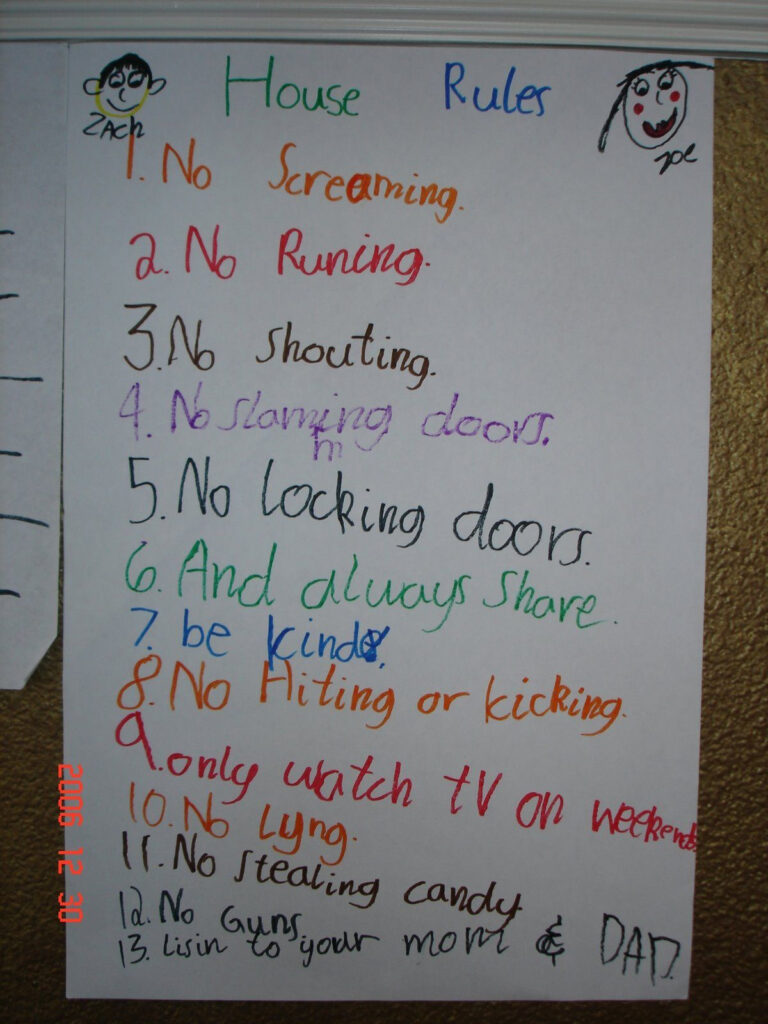 House Rules
Zach
zoe
1. No Screaming.
2. No Runing.
3. No shouting.
4. No slaming doors.
m
5. No locking doors.
6. And always share.
7. be kind.
8. No Hiting or kicking.
9. only watch tV on weekends.
10. No Lyng.
11. No stealing candy
12. No Guns
13. Lisin to your mom & DAD.
2006 12 30